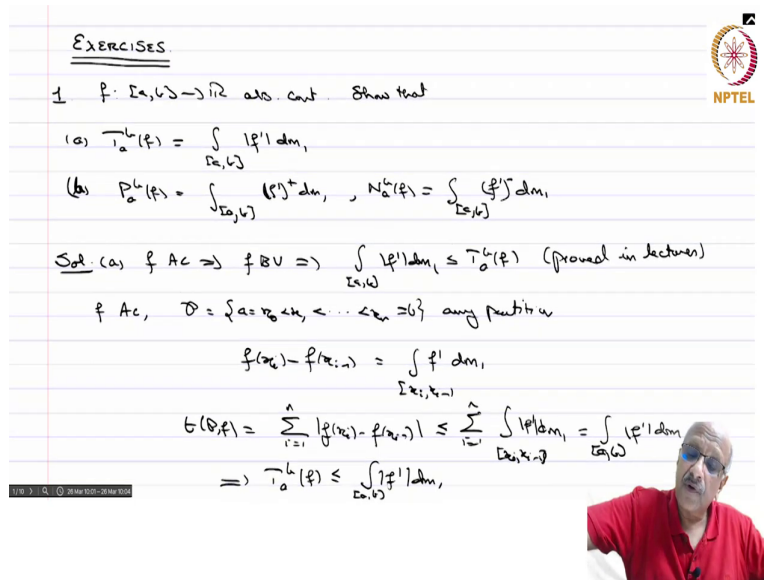 EXERCISES.
NPTEL
1 f: [a,b] → ℝ abs. cont. Show that
(a) T_a^b(f) = ∫_{[a,b]} |f'| dm₁
(b) P_a^b(f) = ∫_{[a,b]} (f')⁺ dm₁, N_a^b(f) = ∫_{[a,b]} (f')⁻ dm₁
Sol. (a) f AC ⇒ f BV ⇒ ∫_{[a,b]} |f'| dm₁ ≤ T_a^b(f) (proved in lectures)
f AC, 𝒫 = {a = x₀ < x₁ < ··· < xₙ = b} any partition
f(xᵢ) - f(xᵢ₋₁) = ∫_{[xᵢ, xᵢ₋₁]} f' dm₁
t(𝒫,f) = Σ_{i=1}^n |f(xᵢ) - f(xᵢ₋₁)| ≤ Σ_{i=1}^n ∫_{[xᵢ, xᵢ₋₁]} |f'| dm₁ = ∫_{[a,b]} |f'| dm
⇒ T_a^b(f) ≤ ∫_{[a,b]} |f'| dm₁
1/10 26 Mar 10:01 - 26 Mar 10:04